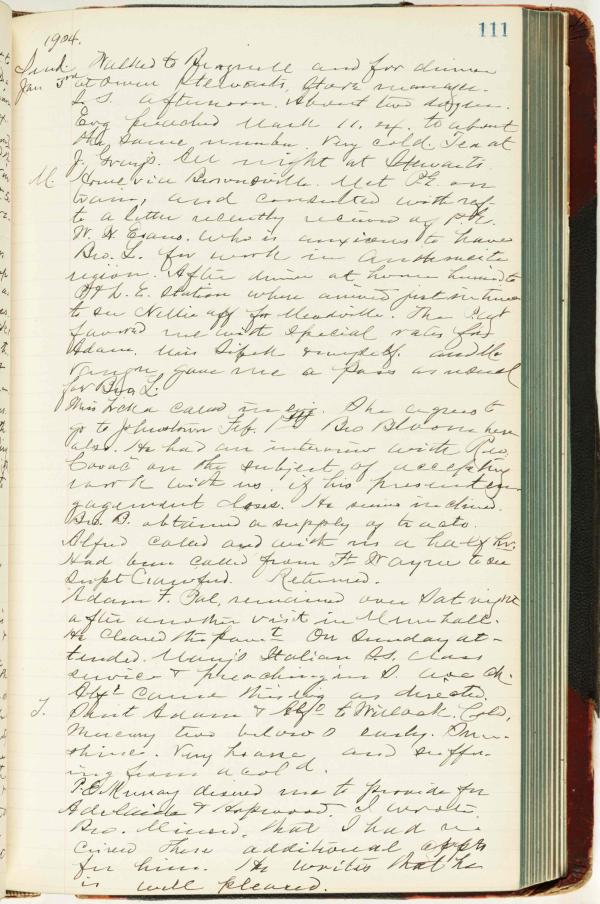 111
1904.
Sund. Walked to and for dinner
Jan 3rd at Owen Stewarts, store manager.
S. S. afternoon. About two dozen.
Evg preached Mark 11. 24. to about
the same number. Very cold. Tea at
J. Grays. All night at Stewarts.
M. Home via Brownsville. Met P.E. on
train, and consulted with ref.
to a letter recently received of P.E.
W. H. Evans. who is anxious to have
Bro. L. for work in Anthracite
region. After dinner at home hurried to
P & L. E. Station where arrived just in time
to see Nellie off for Meadville. The
favored me with special rates for
Adam. Miss & myself. and the
gave me a pass as usual
for Bro L.
Miss called in evg. She agrees to
go to Johnstown Feb. 1st Bro Bloom here
also. He had an interview with Rev.
on the subject of accepting
work with us. if his present en-
gagement closes. He seems inclined.
Bro. B. obtained a supply of tracts.
Alfred called and with us a half hr.
Had been called from Ft Wayne to see
Supt Crawford. Returned.
Adam F. Pal, remained over Sat night
after another visit in Munhall.
He cleared the On Sunday at-
tended Italian S.S. class
service & preaching in ch.
came this evg as directed.
T. Sent Adam & to Willock. Cold,
Mercury two below 0 early. Sun-
shine. Very hoarse and suffer-
ing from a cold.
P.E. Murray desired me to provide for
Adelaide & Hopwood. I wrote
Bro. that I had re-
ceived these additional appts
for him. He writes that he
is well pleased.